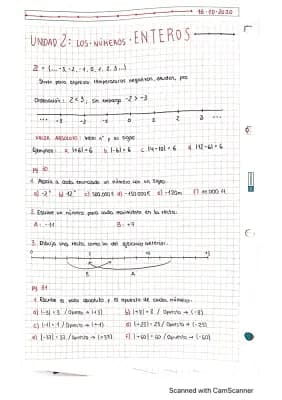 16-10-2020
UNIDAD 2: LOS NÚMEROS ENTEROS
Z = {... -3, -2, -1, 0, 1, 2, 3...}
Sirven para expresar temperaturas negativas, deudas,
Ordenación: 2 < 3; Sin embargo -2 > -3
-3 -2 -1 0 1 2 3
VALOR ABSOLUTO: nº sin signo.
Ejemplos: a. |+6| = 6 b. |-6| = 6 c. |4-10| = 6 d. |12-6| = 6
pg 30
1. Asocia a cada enunciado un número con un signo.
a) -2° b) 12° c) 380.000 € d) -150.000 € e) -120m f) 11.000 ft
2. Escribe un número para cada movimiento en la recta.
A: -11 B: +7
3. Dibuja una recta como la del ejercicio anterior.
0 +5
B A
pg 31
1. Escribe el valor absoluto y el opuesto de cada número.
a) |-3| = 3 / Opuesto → (+3) b) |+8| = 8 / Opuesto → (-8)
c) |-1| = 1 / Opuesto → (+1) d) |+25| = 25 / Opuesto → (-25)
e) |-37| = 37 / Opuesto → (+37) f) |+60| = 60 / Opuesto → (-60)
Scanned with CamScanner